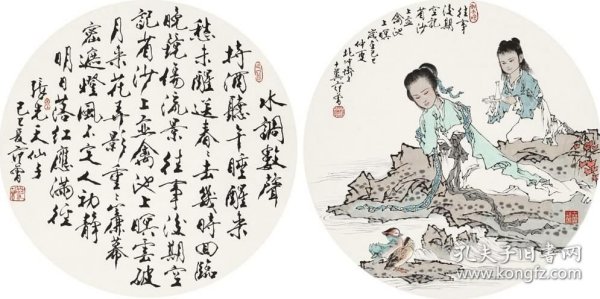 水調數聲
持酒聽午睡醒来
愁未醒送春春去幾時回臨
晚鏡傷流景往事後期空
記省沙上並禽池上暝雲破
月来花弄影重重簾幕
密遮燈風不定人初静
明日落紅應滿徑
張先天仙子
己巳夏
往事
後期
空記
省沙
上並
禽池
上暝
己巳
仲夏
孔夫子旧书网
www.kongfz.com